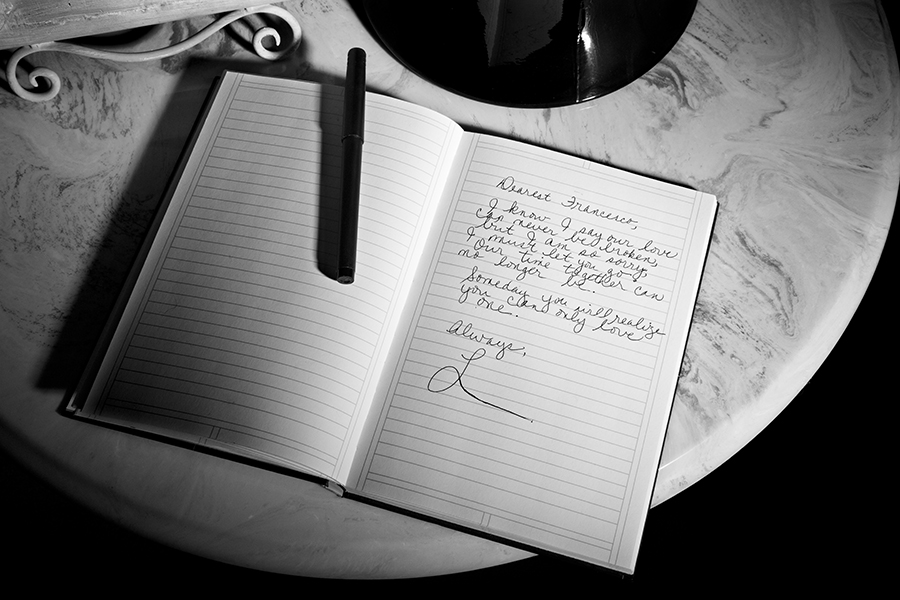 Dearest Francesco,
I know I say our love
can never be broken,
but I am so sorry,
I must let you go.
Our time together can
no longer be.
Someday you will realize
you can only love
one.
Always,
L